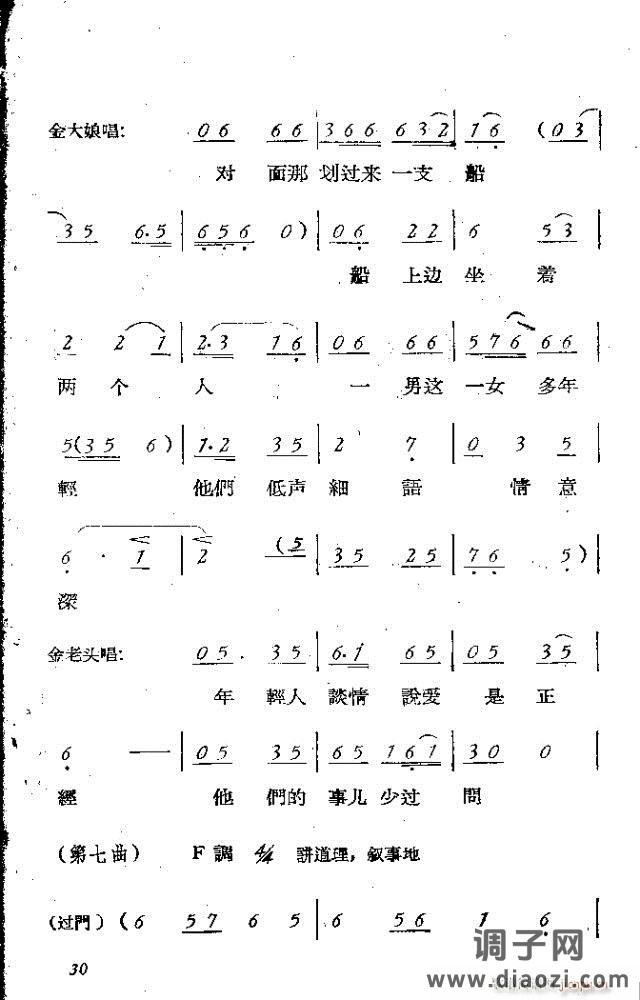 金大娘唱: 0 6 6 6 | 3 6 6 6 3 2 | 1 6 (0 3
对 面那 划过来 一支 船
3 5 6·5 | 6 5 6 0) | 0 6 2 2 | 6 5 3
船 上边 坐 着
2 2 1 | 2·3 1 6 | 0 6 6 6 | 5 7 6 6 6
两 个 人 一 男这 一女 多年
5(3 5 6) | 1·2 3 5 | 2 7 | 0 3 5
輕 他們 低声 細 語 情 意
6 · 1 | 2 (5 | 3 5 2 5 | 7 6 5)
深
金老头唱: 0 5 · 3 5 | 6·1 6 5 | 0 5 3 5
年 輕人 談情 說爱 是 正
6 — | 0 5 3 5 | 6 5 1 6 1 | 3 0 0
經 他 們的 事儿 少过 問
(第七曲) F調 4/4 講道理，叙事地
(过門) (6 5 7 6 5 | 6 5 6 1 6
30
调子网
www.diaozi.com